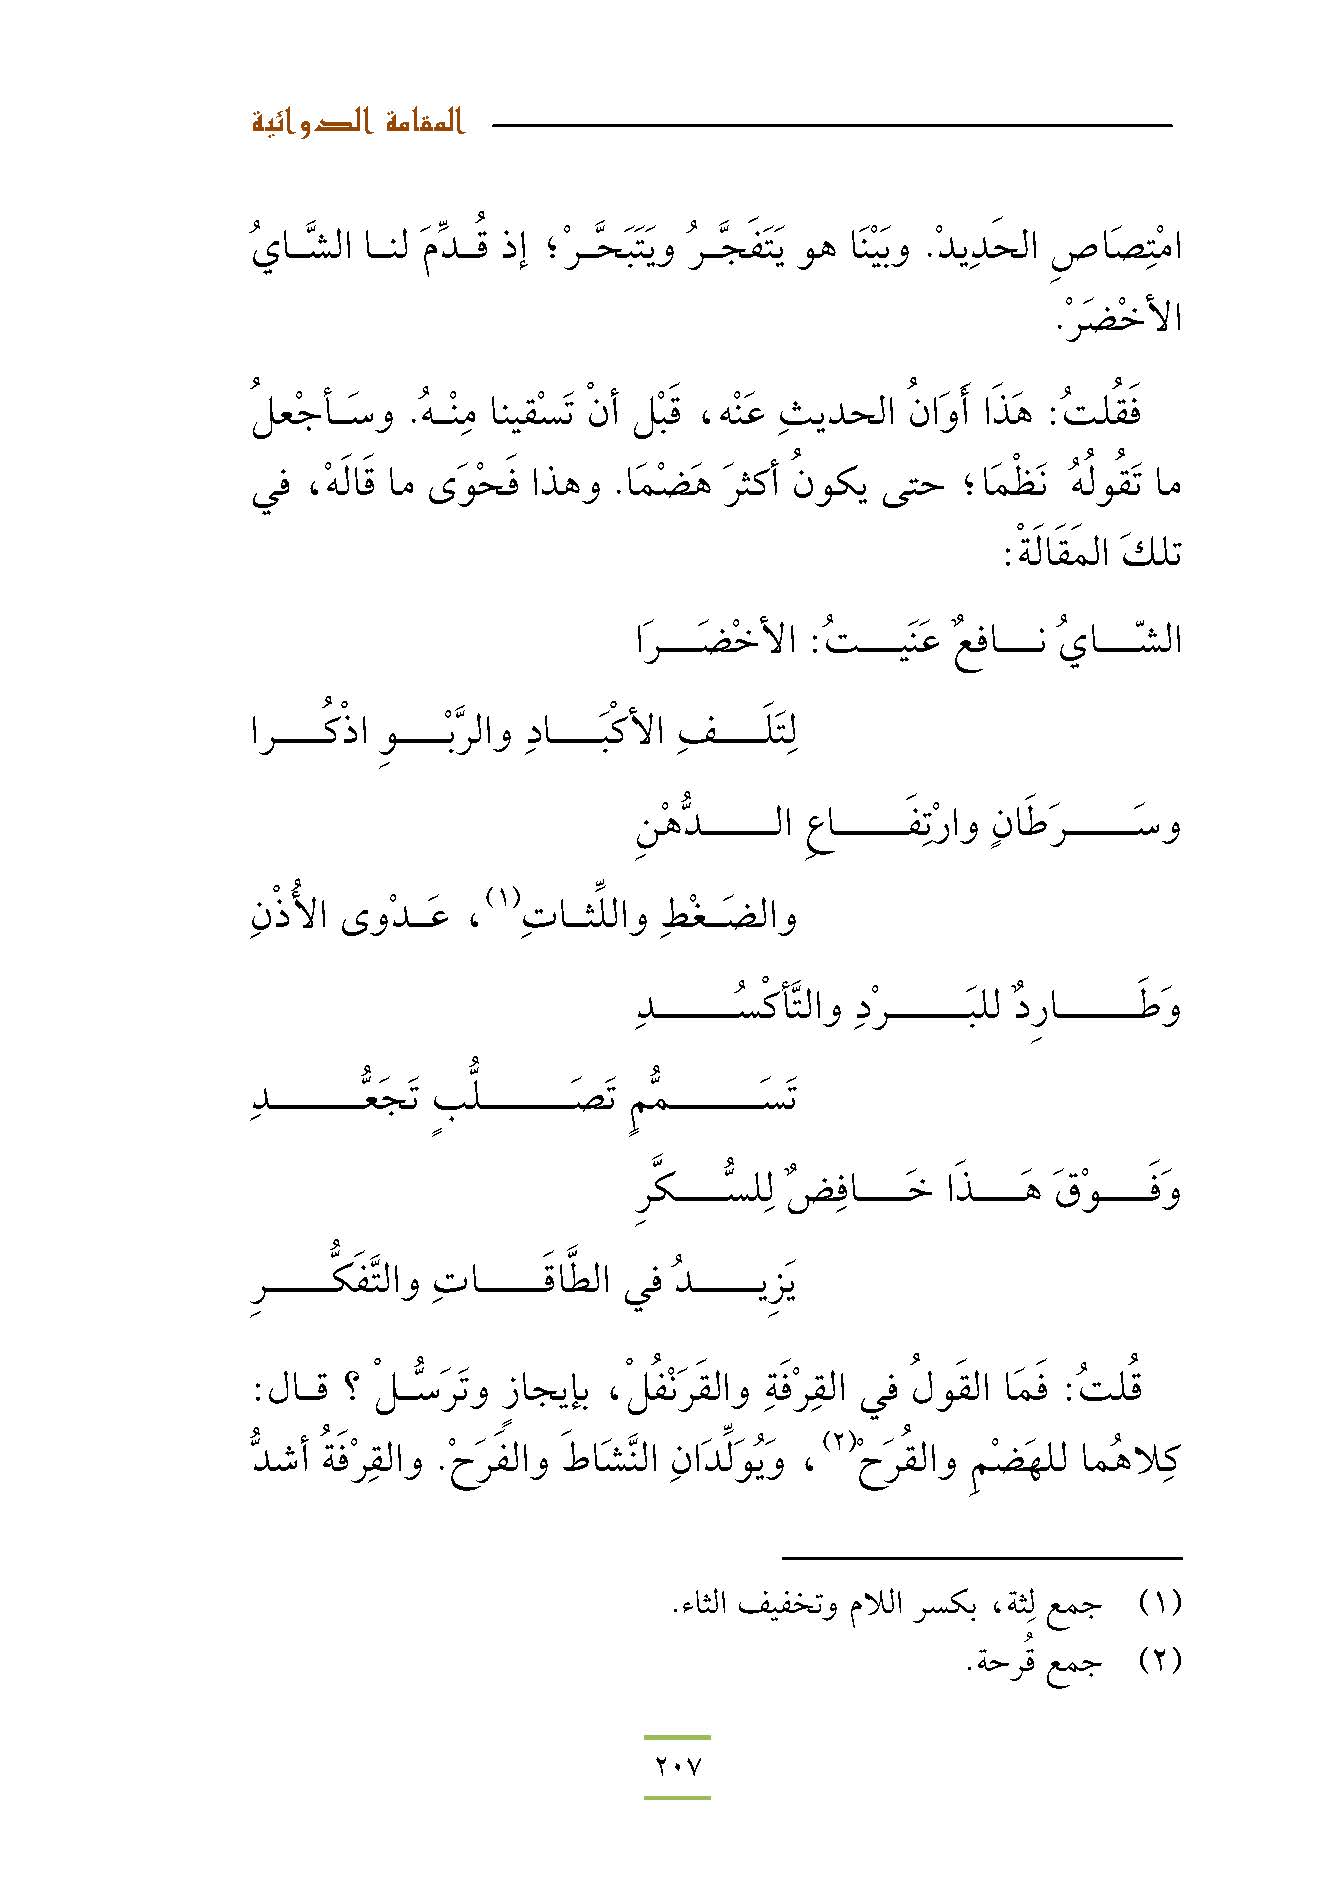 المقامة الدوائية
امْتِصَاصِ الحَدِيدْ. وبَيْنَا هو يَتَفَجَّرُ ويَتَبَحَّرْ؛ إذ قُدِّمَ لنا الشَّايُ
الأخْضَرْ.
فَقُلتُ: هَذَا أَوَانُ الحديثِ عَنْه، قَبْل أنْ تَسْقينا مِنْهُ. وسَأجْعلُ
ما تَقُولُهُ نَظْمَا؛ حتى يكونُ أكثرَ هَضْمَا. وهذا فَحْوَى ما قَالَهْ، في
تلكَ المَقَالَةْ:
الشّايُ نافعٌ عَنَيتُ: الأخْضَرَا
لِتَلَفِ الأكْبَادِ والرَّبْوِ اذْكُرا
وسَرَطَانٍ وارْتِفَاعِ الدُّهْنِ
والضَغْطِ واللِّثاتِ(١)، عَدْوى الأُذْنِ
وَطَارِدٌ للبَرْدِ والتَّأكْسُدِ
تَسَمُّمٍ تَصَلُّبٍ تَجَعُّدِ
وَفَوْقَ هَذَا خَافِضٌ لِلسُّكَّرِ
يَزِيدُ في الطَّاقَاتِ والتَّفَكُّرِ
قُلتُ: فَمَا القَولُ في القِرْفَةِ والقَرَنْفُلْ، بإيجازٍ وتَرَسُّلْ ؟ قال:
كِلاهُما للهَضْمِ والقُرَحْ(٢)، وَيُوَلِّدَانِ النَّشَاطَ والفَرَحْ. والقِرْفَةُ أشدُّ
(١) جمع لِثة، بكسر اللام وتخفيف الثاء.
(٢) جمع قُرحة.
٢٠٧